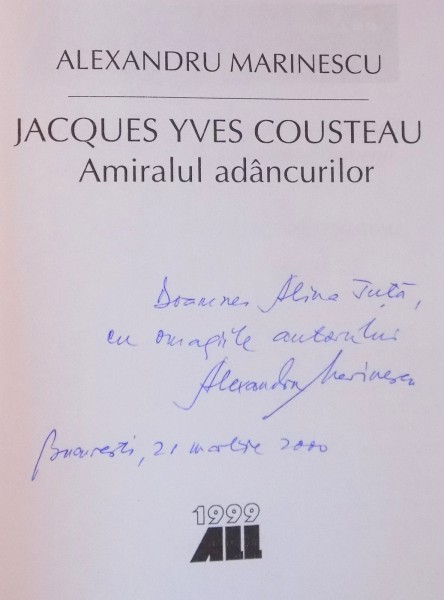 ALEXANDRU MARINESCU
JACQUES YVES COUSTEAU
Amiralul adâncurilor
Doamnei Alina Țuță,
cu omagiile autorului
Alexandru Marinescu
București, 21 martie 2000
1999
ALL